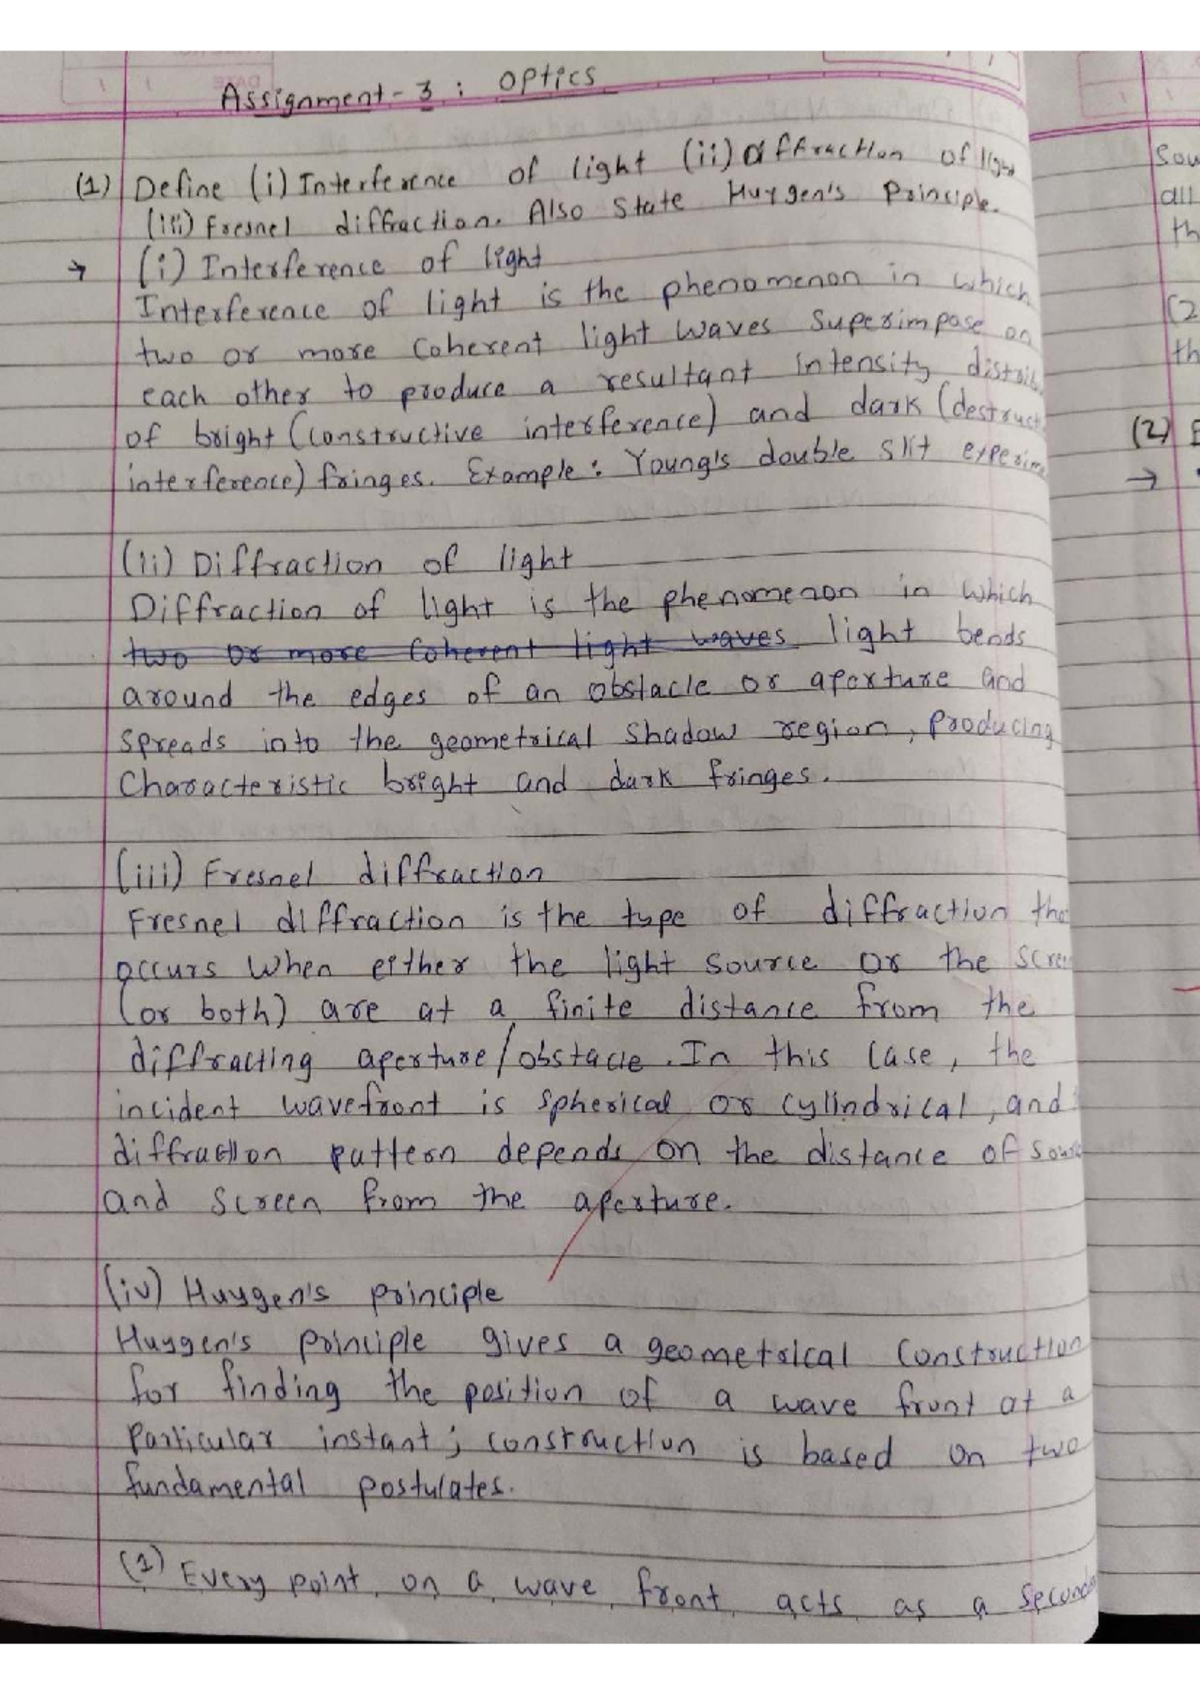 Assignment-3 : Optics
(1) Define (i) Interference of light (ii) diffraction of light
(iii) Fresnel diffraction. Also State Huygen's Principle.
→ (i) Interference of light
Interference of light is the phenomenon in which
two or more Coherent light waves Superimpose on
each other to produce a resultant intensity distrib
of bright (constructive interference) and dark (destruct
interference) fringes. Example : Young's double slit experim
(ii) Diffraction of light
Diffraction of light is the phenomenon in which
two or more Coherent light waves light bends
around the edges of an obstacle or aperture and
spreads into the geometrical shadow region, producing
Characteristic bright and dark fringes.
(iii) Fresnel diffraction
Fresnel diffraction is the type of diffraction tha
occurs when either the light source or the scree
(or both) are at a finite distance from the
diffracting aperture/obstacle. In this case, the
incident wavefront is spherical or cylindrical, and
diffraction pattern depends on the distance of sour
and screen from the aperture.
(iv) Huygen's principle
Huygen's principle gives a geometrical construction
for finding the position of a wave front at a
particular instant; construction is based on two
fundamental postulates.
(1) Every point on a wave front acts as a seconda
Sou
all
th
(2
th
(2) E
→